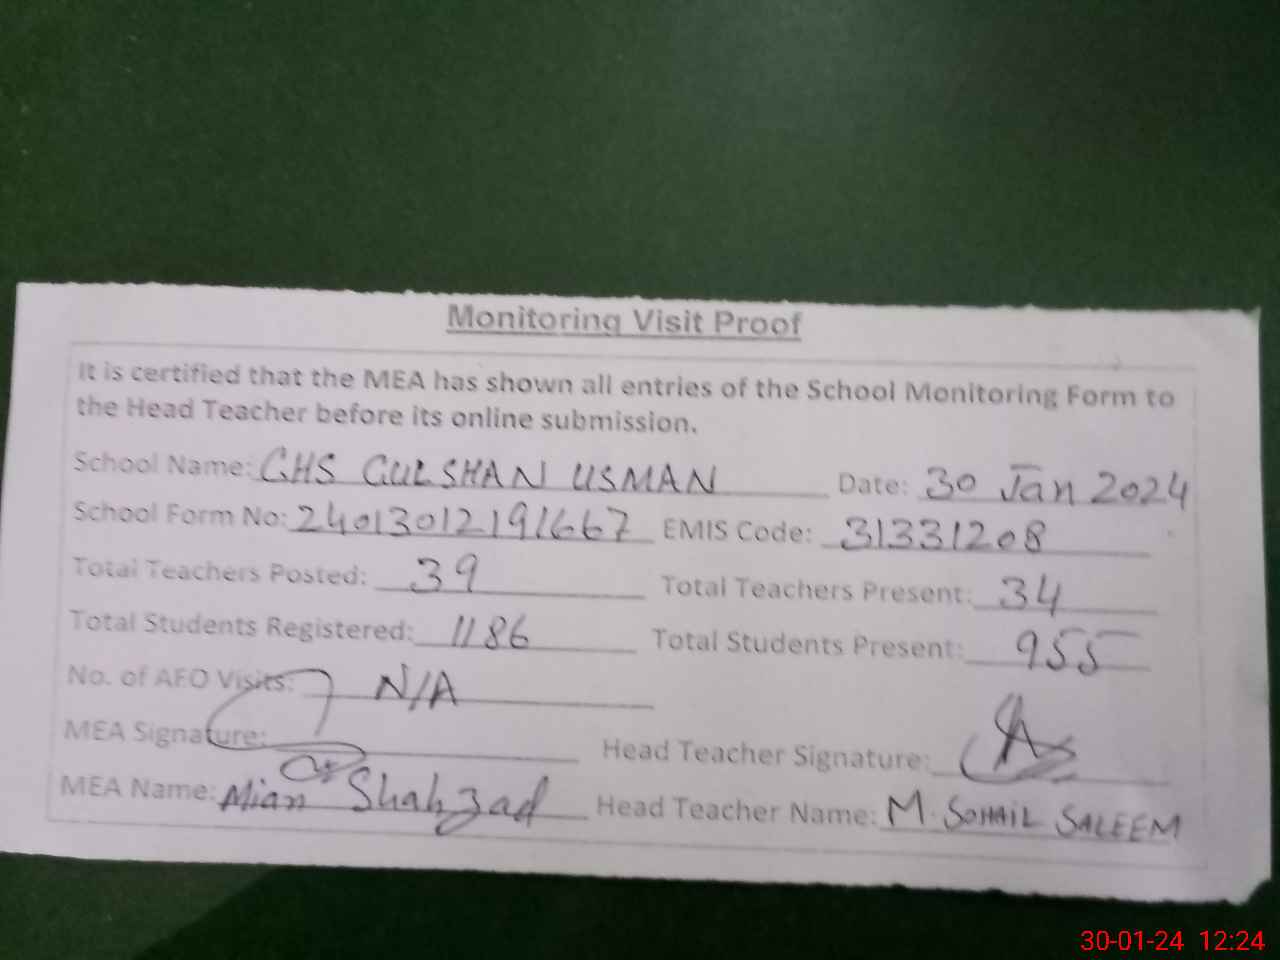 Monitoring Visit Proof
It is certified that the MEA has shown all entries of the School Monitoring Form to
the Head Teacher before its online submission.
School Name: GHS GULSHAN USMAN Date: 30 Jan 2024
School Form No: 24013012191667 EMIS Code: 31331208
Total Teachers Posted: 39 Total Teachers Present: 34
Total Students Registered: 1186 Total Students Present: 955
No. of AEO Visits: N/A
MEA Signature: Head Teacher Signature:
MEA Name: Mian Shahzad Head Teacher Name: M. SOHAIL SALEEM
30-01-24 12:24